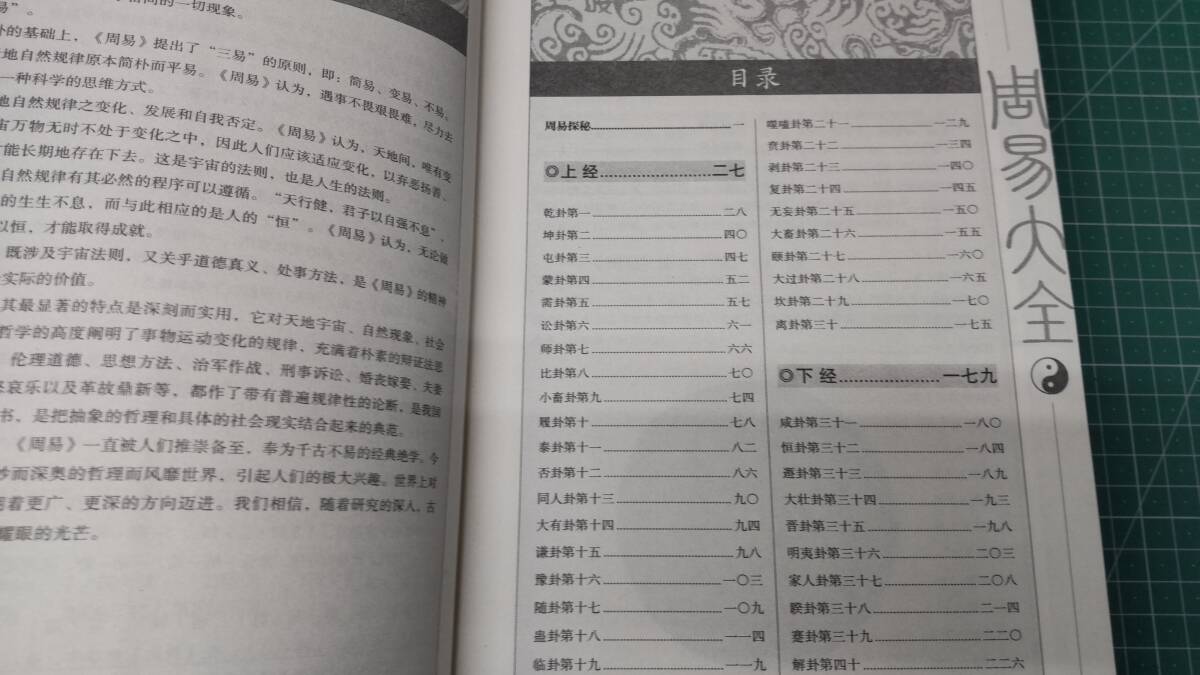 相同的一切现象。
易”。
卦的基础上,《周易》提出了“三易”的原则,即:简易、变易、不易。
地自然规律原本简朴而平易。《周易》认为,遇事不畏艰畏难,尽力去
一种科学的思维方式。
地自然规律之变化、发展和自我否定。《周易》认为,天地间,唯有变
宙万物无时不处于变化之中,因此人们应该适应变化,以弃恶扬善、
才能长期地存在下去。这是宇宙的法则,也是人生的法则。
自然规律有其必然的程序可以遵循。“天行健,君子以自强不息”,
的生生不息,而与此相应的是人的“恒”。《周易》认为,无论做
以恒,才能取得成就。
既涉及宇宙法则,又关乎道德真义、处事方法,是《周易》的精神
实际的价值。
其最显著的特点是深刻而实用,它对天地宇宙、自然现象、社会
哲学的高度阐明了事物运动变化的规律,充满着朴素的辩证法思
伦理道德、思想方法、治军作战、刑事诉讼、婚丧嫁娶、夫妻
哀乐以及革故鼎新等,都作了带有普遍规律性的论断,是我国
书,是把抽象的哲理和具体的社会现实结合起来的典范。
《周易》一直被人们推崇备至,奉为千古不易的经典绝学。今
妙而深奥的哲理而风靡世界,引起人们的极大兴趣。世界上对
着更广、更深的方向迈进。我们相信,随着研究的深入,古
耀眼的光芒。
目录
周易探秘 一
◎上经 二七
乾卦第一 二八
坤卦第二 四〇
屯卦第三 四七
蒙卦第四 五二
需卦第五 五七
讼卦第六 六一
师卦第七 六六
比卦第八 七〇
小畜卦第九 七四
履卦第十 七八
泰卦第十一 八二
否卦第十二 八六
同人卦第十三 九〇
大有卦第十四 九四
谦卦第十五 九八
豫卦第十六 一〇三
随卦第十七 一〇九
蛊卦第十八 一一四
临卦第十九 一一九
噬嗑卦第二十一 一二九
贲卦第二十二 一三四
剥卦第二十三 一四〇
复卦第二十四 一四五
无妄卦第二十五 一五〇
大畜卦第二十六 一五五
颐卦第二十七 一六〇
大过卦第二十八 一六五
坎卦第二十九 一七〇
离卦第三十 一七五
◎下经 一七九
咸卦第三十一 一八〇
恒卦第三十二 一八四
遯卦第三十三 一八九
大壮卦第三十四 一九三
晋卦第三十五 一九八
明夷卦第三十六 二〇三
家人卦第三十七 二〇八
睽卦第三十八 二一四
蹇卦第三十九 二二〇
解卦第四十 二二六
周易大全